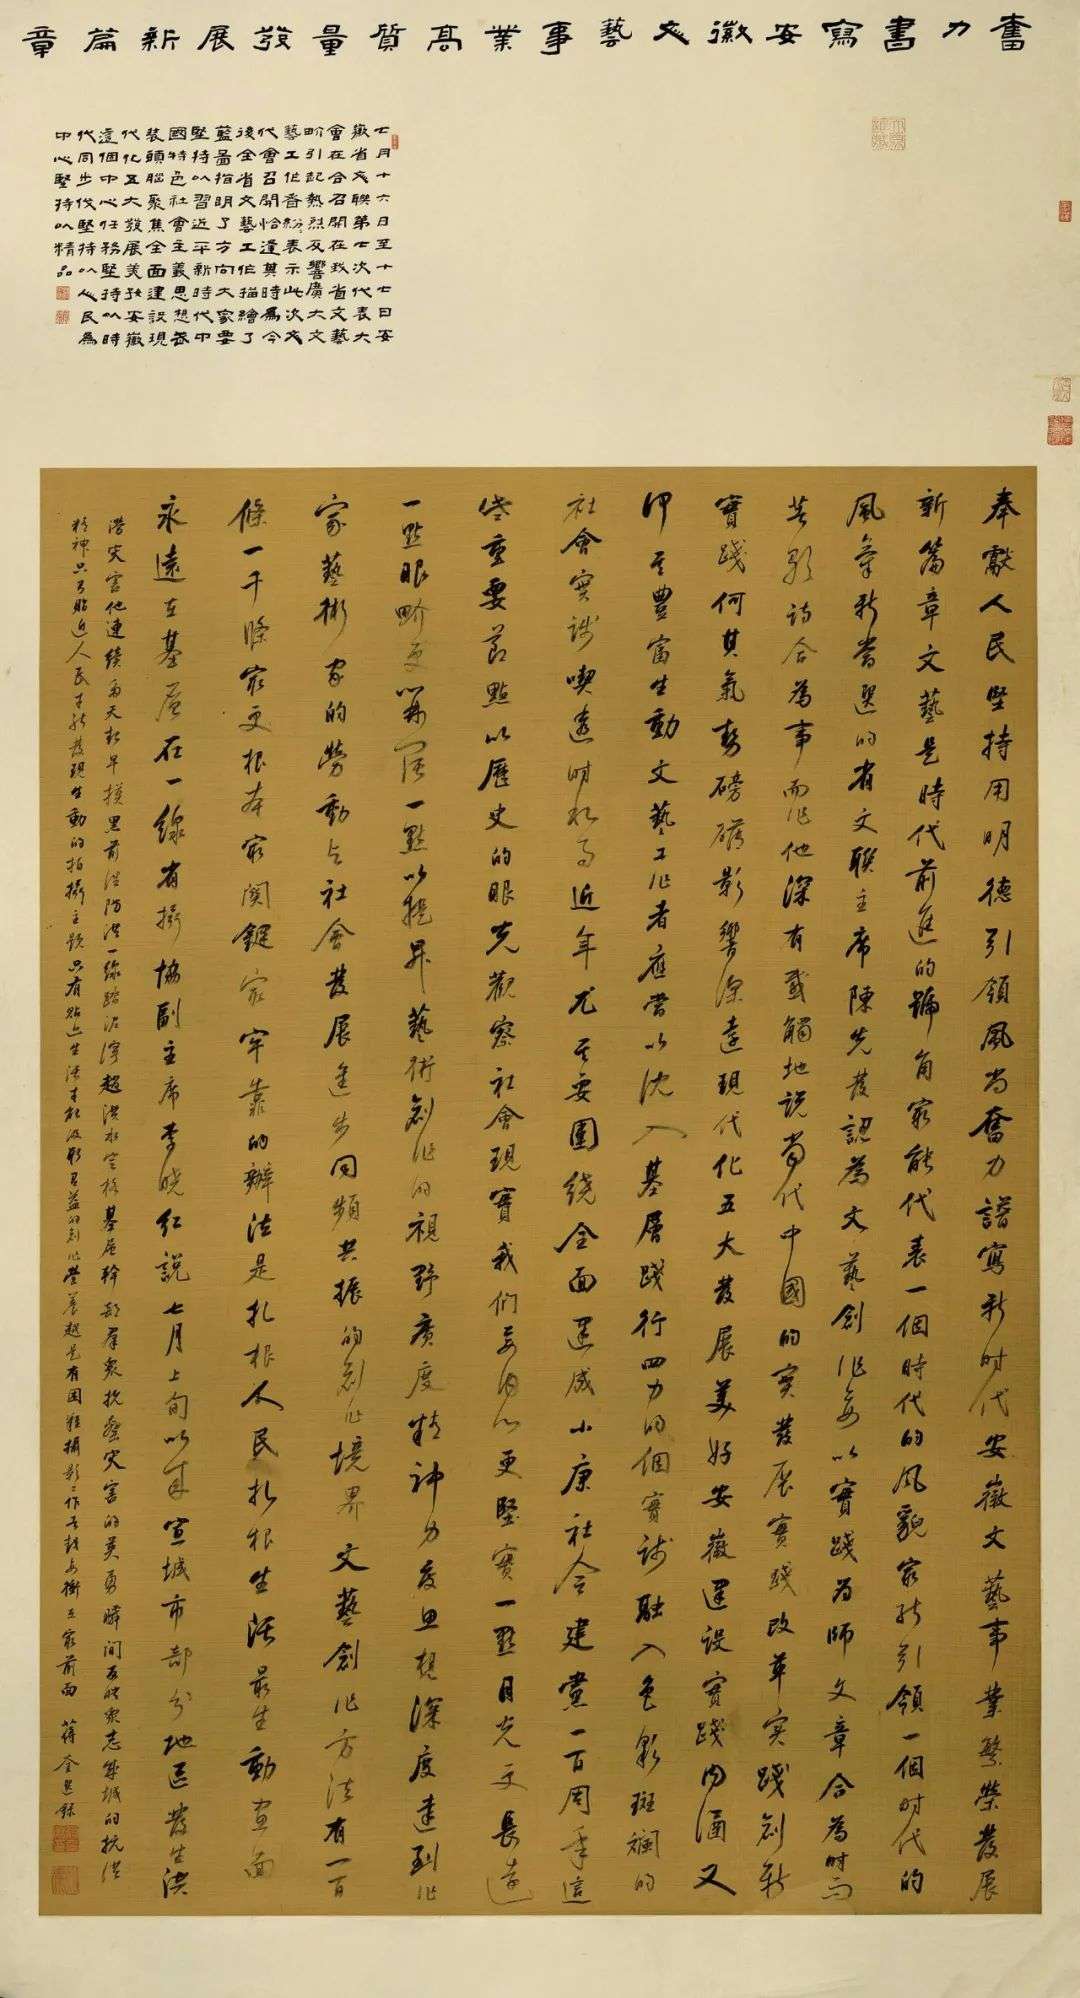 奮力書寫安徽文藝事業高質量發展新篇章
七月十六日至十七日安
徽省文聯第七次代表大
會在合召開在我省文藝
畍引起熱烈反響廣大文
藝工作者紛表示此次文
代會召開恰逢其時爲今
後全省文藝工作描繪了
藍圖指明了方向大家要
堅持以習近平新時代中
國特色社會主義思想武
裝頭腦聚焦全面建設現
代化五大發展美好安徽
這個中心任務堅持以時
代同步伐堅持以人民爲
中心堅持以精品
奉獻人民堅持用明德引領風尚奮力譜寫新時代安徽文藝事業繁榮發展
新篇章文藝是時代前進的號角最能代表一個時代的風貌最能引領一個時代的
風氣新當選的省文聯主席陳先發認為文藝創作要以實踐為師文章合為時而
著歌詩合為事而作他深有感觸地説當代中國的實發展實踐改革实踐創新
實踐何其氣勢磅礴影響深遠現代化五大發展美好安徽建設實踐内涵又
何其豐富生動文藝工作者應當以沈入基層踐行四力的個實踐融入色彩斑斕的
社會實踐喫透時代与近年尤其要圍繞全面建成小康社会建黨一百周年這
些重要節點以歷史的眼光觀察社會現實我们要内心更堅實一點目光更長遠
一點眼畍更以開闊一點以提昇藝術創作的視野廣度精神力度思想深度達到作
家藝術家的勞動与社會發展進步同頻共振的創作境界文藝創作方法有一百
條一千條最更根本最関鍵最牢靠的辦法是扎根人民扎根生活最生動畫面
永遠在基層在一線省攝協副主席李曉紅説七月上旬以来宣城市部分地區發生洪
澇灾害他連續多天起早摸黑前徃防洪一線踏泥濘趟洪水定格基層幹部羣衆抗擊灾害的英勇瞬間反映衆志成城的抗洪
精神只有貼近人民才能發現生動的拍攝主題只有貼近生活才能汲取有益的創作營養越是有困難攝影工作者越要衝在最前面 蔣全思録